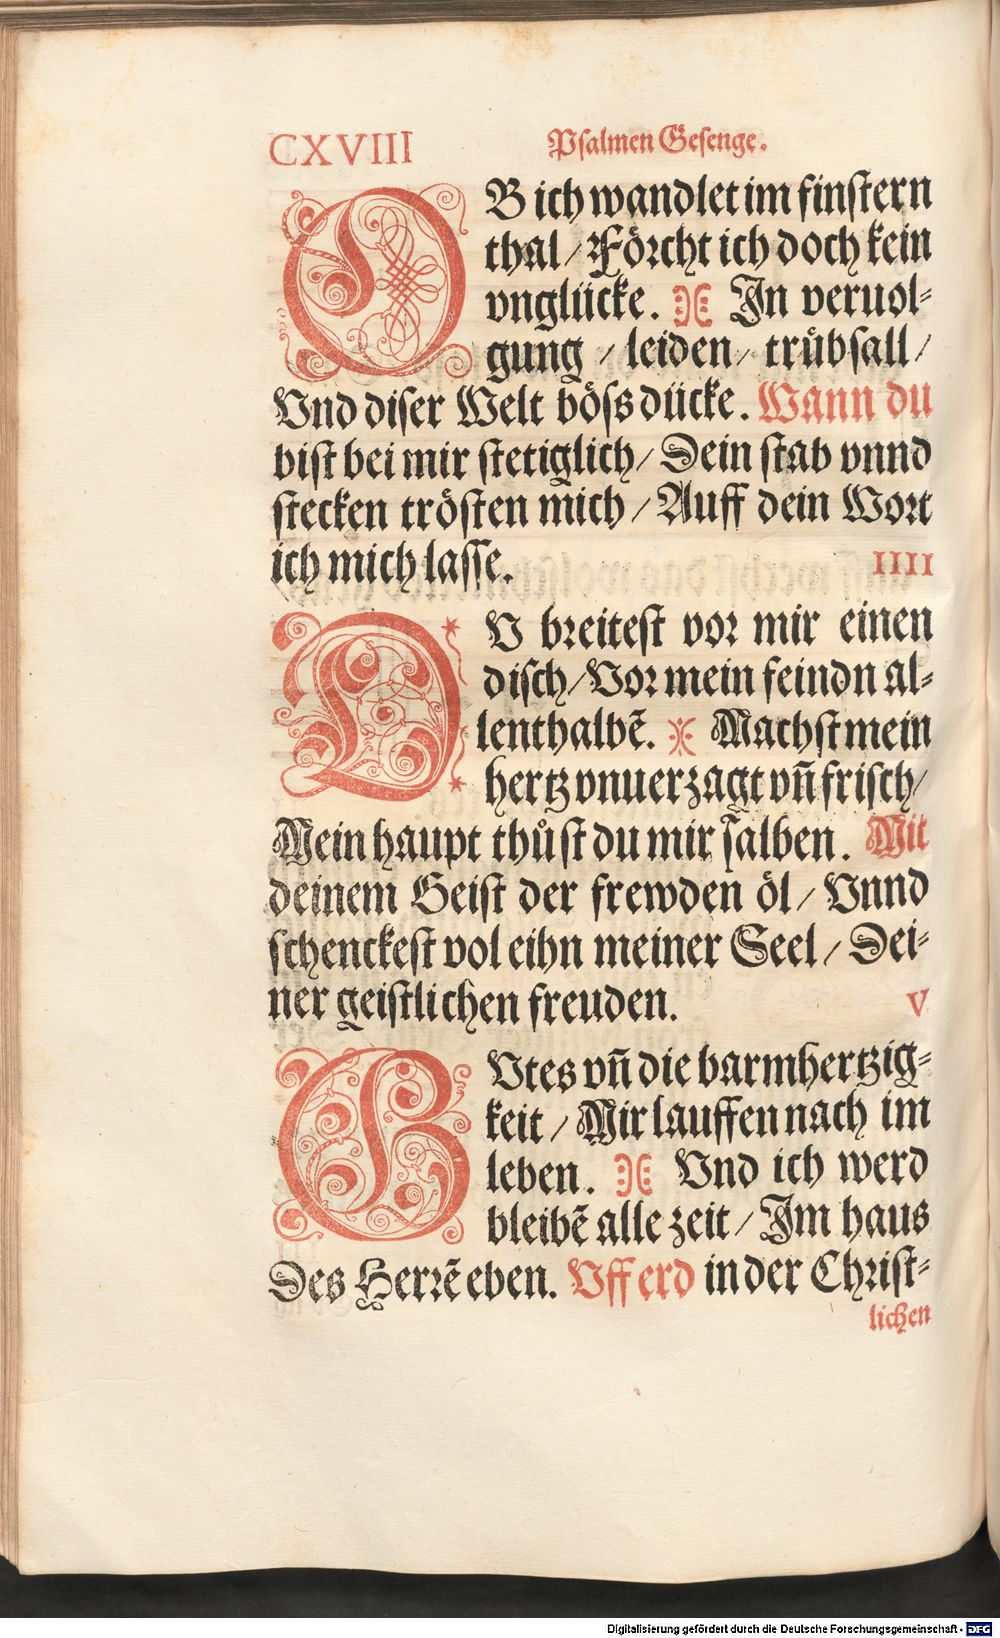 CXVIII Psalmen Gesenge.
OB ich wandlet im finstern
thal / Förcht ich doch kein
vnglücke. In veruol⸗
gung / leiden / trůbsall /
Vnd diser Welt böss dücke. Wann du
bist bei mir stetiglich / Dein stab vnnd
stecken trösten mich / Auff dein Wort
ich mich lasse. IIII
DV breitest vor mir einen
disch / Vor mein feindn al⸗
lenthalbẽ. Machst mein
hertz vnuerzagt vñ frisch /
Mein haupt thůst du mir salben. Mit
deinem Geist der frewden öl / Vnnd
schenckest vol eihn meiner Seel / Dei⸗
ner geistlichen freuden. V
GVtes vñ die barmhertzig⸗
keit / Mir lauffen nach im
leben. Vnd ich werd
bleibẽ alle zeit / Im haus
Des Herrẽ eben. Vff erd in der Christ⸗
lichen
Digitalisierung gefördert durch die Deutsche Forschungsgemeinschaft - DFG